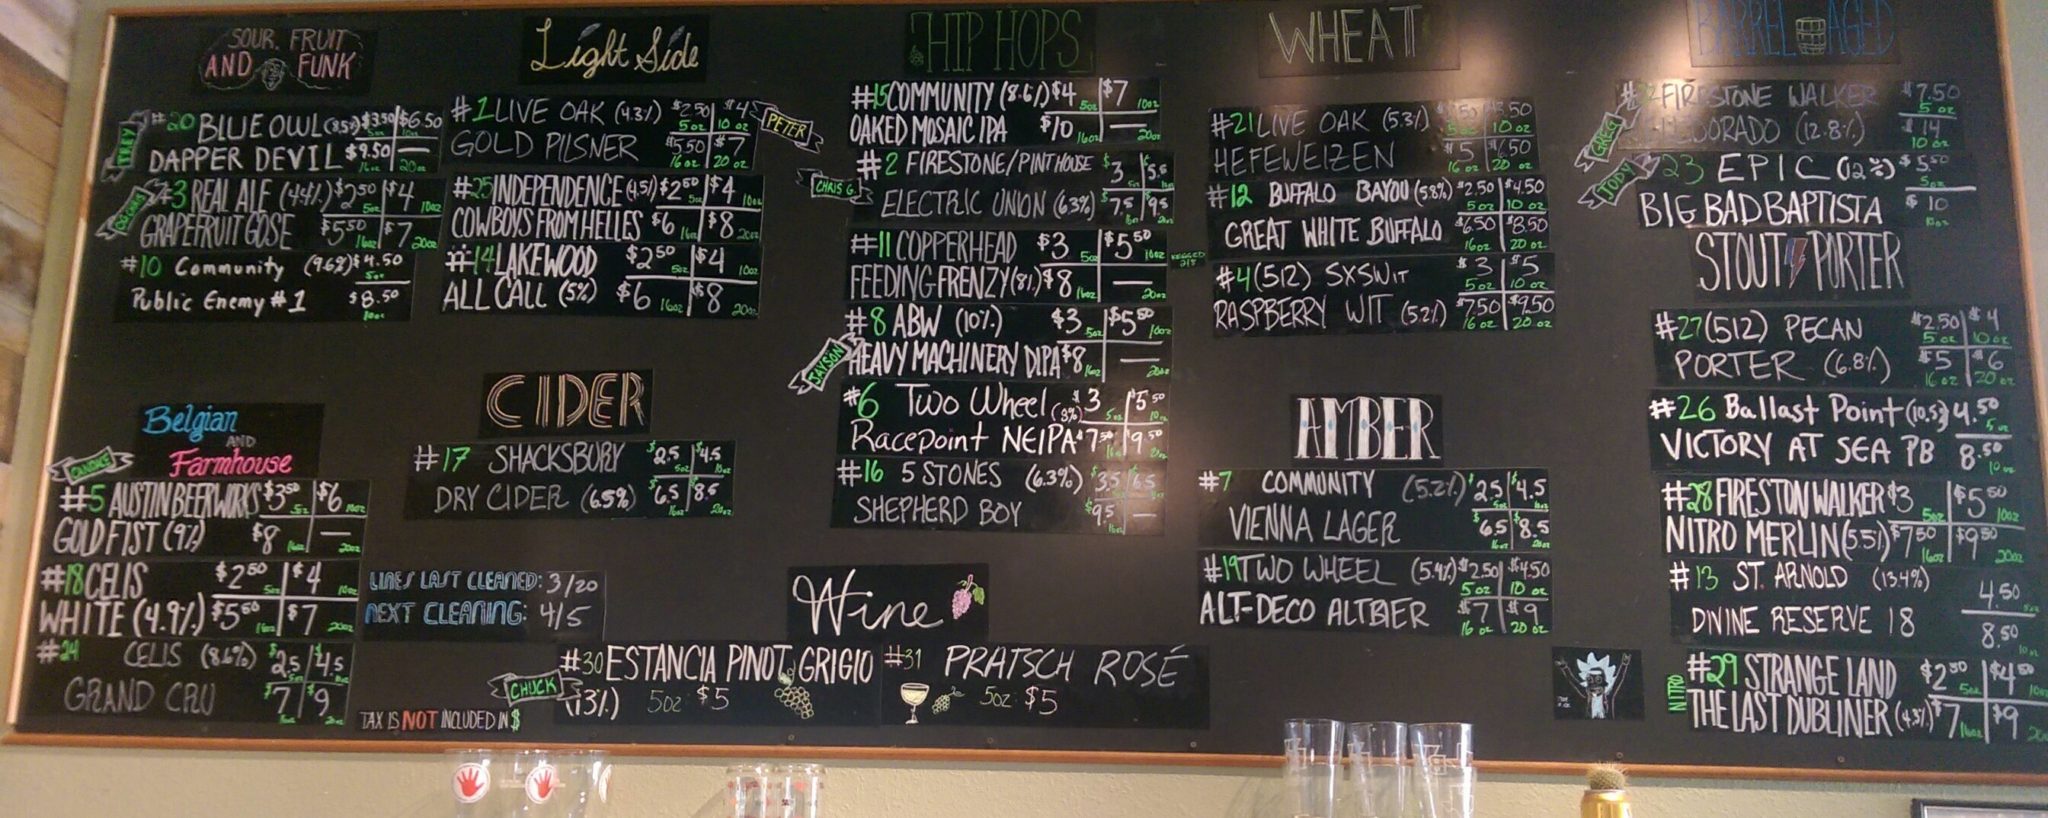 SOUR, FRUIT
AND FUNK
TREY
#20 BLUE OWL (8.5%) $3.50 5oz $6.50 10oz
DAPPER DEVIL $9.50 16oz — 20oz
#3 REAL ALE (4.4%) $2.50 5oz $4 10oz
GRAPEFRUIT GOSE $5.50 16oz $7 20oz
#10 Community (9.6%) $4.50 5oz
Public Enemy #1 $8.50 10oz
Belgian
AND
Farmhouse
CANDACE
#5 AUSTIN BEERWORKS $3.50 5oz $6 10oz
GOLD FIST (9%) $8 16oz — 20oz
#18 CELIS $2.50 5oz $4 10oz
WHITE (4.9%) $5.50 16oz $7 20oz
#24 CELIS (8.6%) $2.5 5oz $4.5 10oz
GRAND CRU $7 16oz $9 20oz
Light Side
#1 LIVE OAK (4.3%) $2.50 5 oz $4 10 oz
GOLD PILSNER $5.50 16 oz $7 20 oz
PETER
#25 INDEPENDENCE (4.5%) $2.50 5oz $4 10oz
COWBOYS FROM HELLES $6 16oz $8 20oz
#14 LAKEWOOD $2.50 5oz $4 10oz
ALL CALL (5%) $6 16oz $8 20oz
CIDER
#17 SHACKSBURY $2.5 5oz $4.5 10oz
DRY CIDER (6.5%) $6.5 16oz $8.5 20oz
LINES LAST CLEANED: 3/20
NEXT CLEANING: 4/5
TAX IS NOT INCLUDED IN $
HIP HOPS
#15 COMMUNITY (8.6%) $4 5oz $7 10oz
OAKED MOSAIC IPA $10 16oz — 20oz
CHRIS G.
#2 FIRESTONE/PINTHOUSE $3 5oz $5.5
ELECTRIC UNION (6.3%) $7.5 16oz $9.5 20oz
#11 COPPERHEAD $3 5oz $5.50 10oz
FEEDING FRENZY (8%) $8 16oz — 20oz
KEGGED
#8 ABW (10%) $3 5oz $5.50 10oz
HEAVY MACHINERY DIPA $8 16oz — 20oz
JAYSON
#6 Two Wheel (8%) $3 5oz $5.50 10oz
Racepoint NEIPA $7.50 16oz $9.50 20oz
#16 5 STONES (6.3%) $3.5 $6.5
SHEPHERD BOY $9.5 16oz —
Wine
CHUCK
#30 ESTANCIA PINOT GRIGIO
(13%) 5oz $5
#31 PRATSCH ROSÉ
5oz $5
WHEAT
#21 LIVE OAK (5.3%) 5oz 10 oz
HEFEWEIZEN $5 16 oz $6.50 20 oz
#12 BUFFALO BAYOU (5.8%) $2.50 5 oz $4.50 10 oz
GREAT WHITE BUFFALO $6.50 16oz $8.50 20 oz
#4 (512) SXSWIT $3 5 oz $5 10 oz
RASPBERRY WIT (5.2%) $7.50 16 oz $9.50 20 oz
AMBER
#7 COMMUNITY (5.2%) $2.5 5oz $4.5 10oz
VIENNA LAGER $6.5 16oz $8.5 20oz
#19 TWO WHEEL (5.4%) $2.50 5 oz $4.50 10 oz
ALT-DECO ALTBIER $7 16 oz $9 20 oz
BARREL AGED
FIRESTONE WALKER $7.50 5 oz
GREG
(12.8%) $14 10 oz
JODY
23 EPIC (12%) $5.50 5oz
BIG BAD BAPTISTA $10 10oz
STOUT PORTER
#27 (512) PECAN $2.50 5 oz $4 10 oz
PORTER (6.8%) $5 16 oz $6 20 oz
#26 Ballast Point (10.5%) 4.50 5 oz
VICTORY AT SEA PB 8.50 10 oz
#28 FIRESTON WALKER $3 5oz $5.50 10oz
NITRO MERLIN (5.5%) $7.50 16oz $9.50 20oz
#13 ST. ARNOLD (13.4%) 4.50
DIVINE RESERVE 18 8.50
NITRO
#29 STRANGE LAND $2.50 5oz $4.50 10oz
THE LAST DUBLINER (4.3%) $7 16oz $9